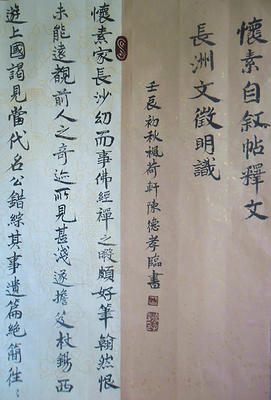 懷素自叙帖釋文
長洲文徵明識
壬辰初秋楓荷軒陳德孝臨書
懷素家長沙幼而事佛經禪之暇頗好筆翰然恨
未能遠覩前人之奇迹所見甚淺遂擔笈杖錫西
遊上國謁見當代名公錯綜其事遺篇絕簡往〻